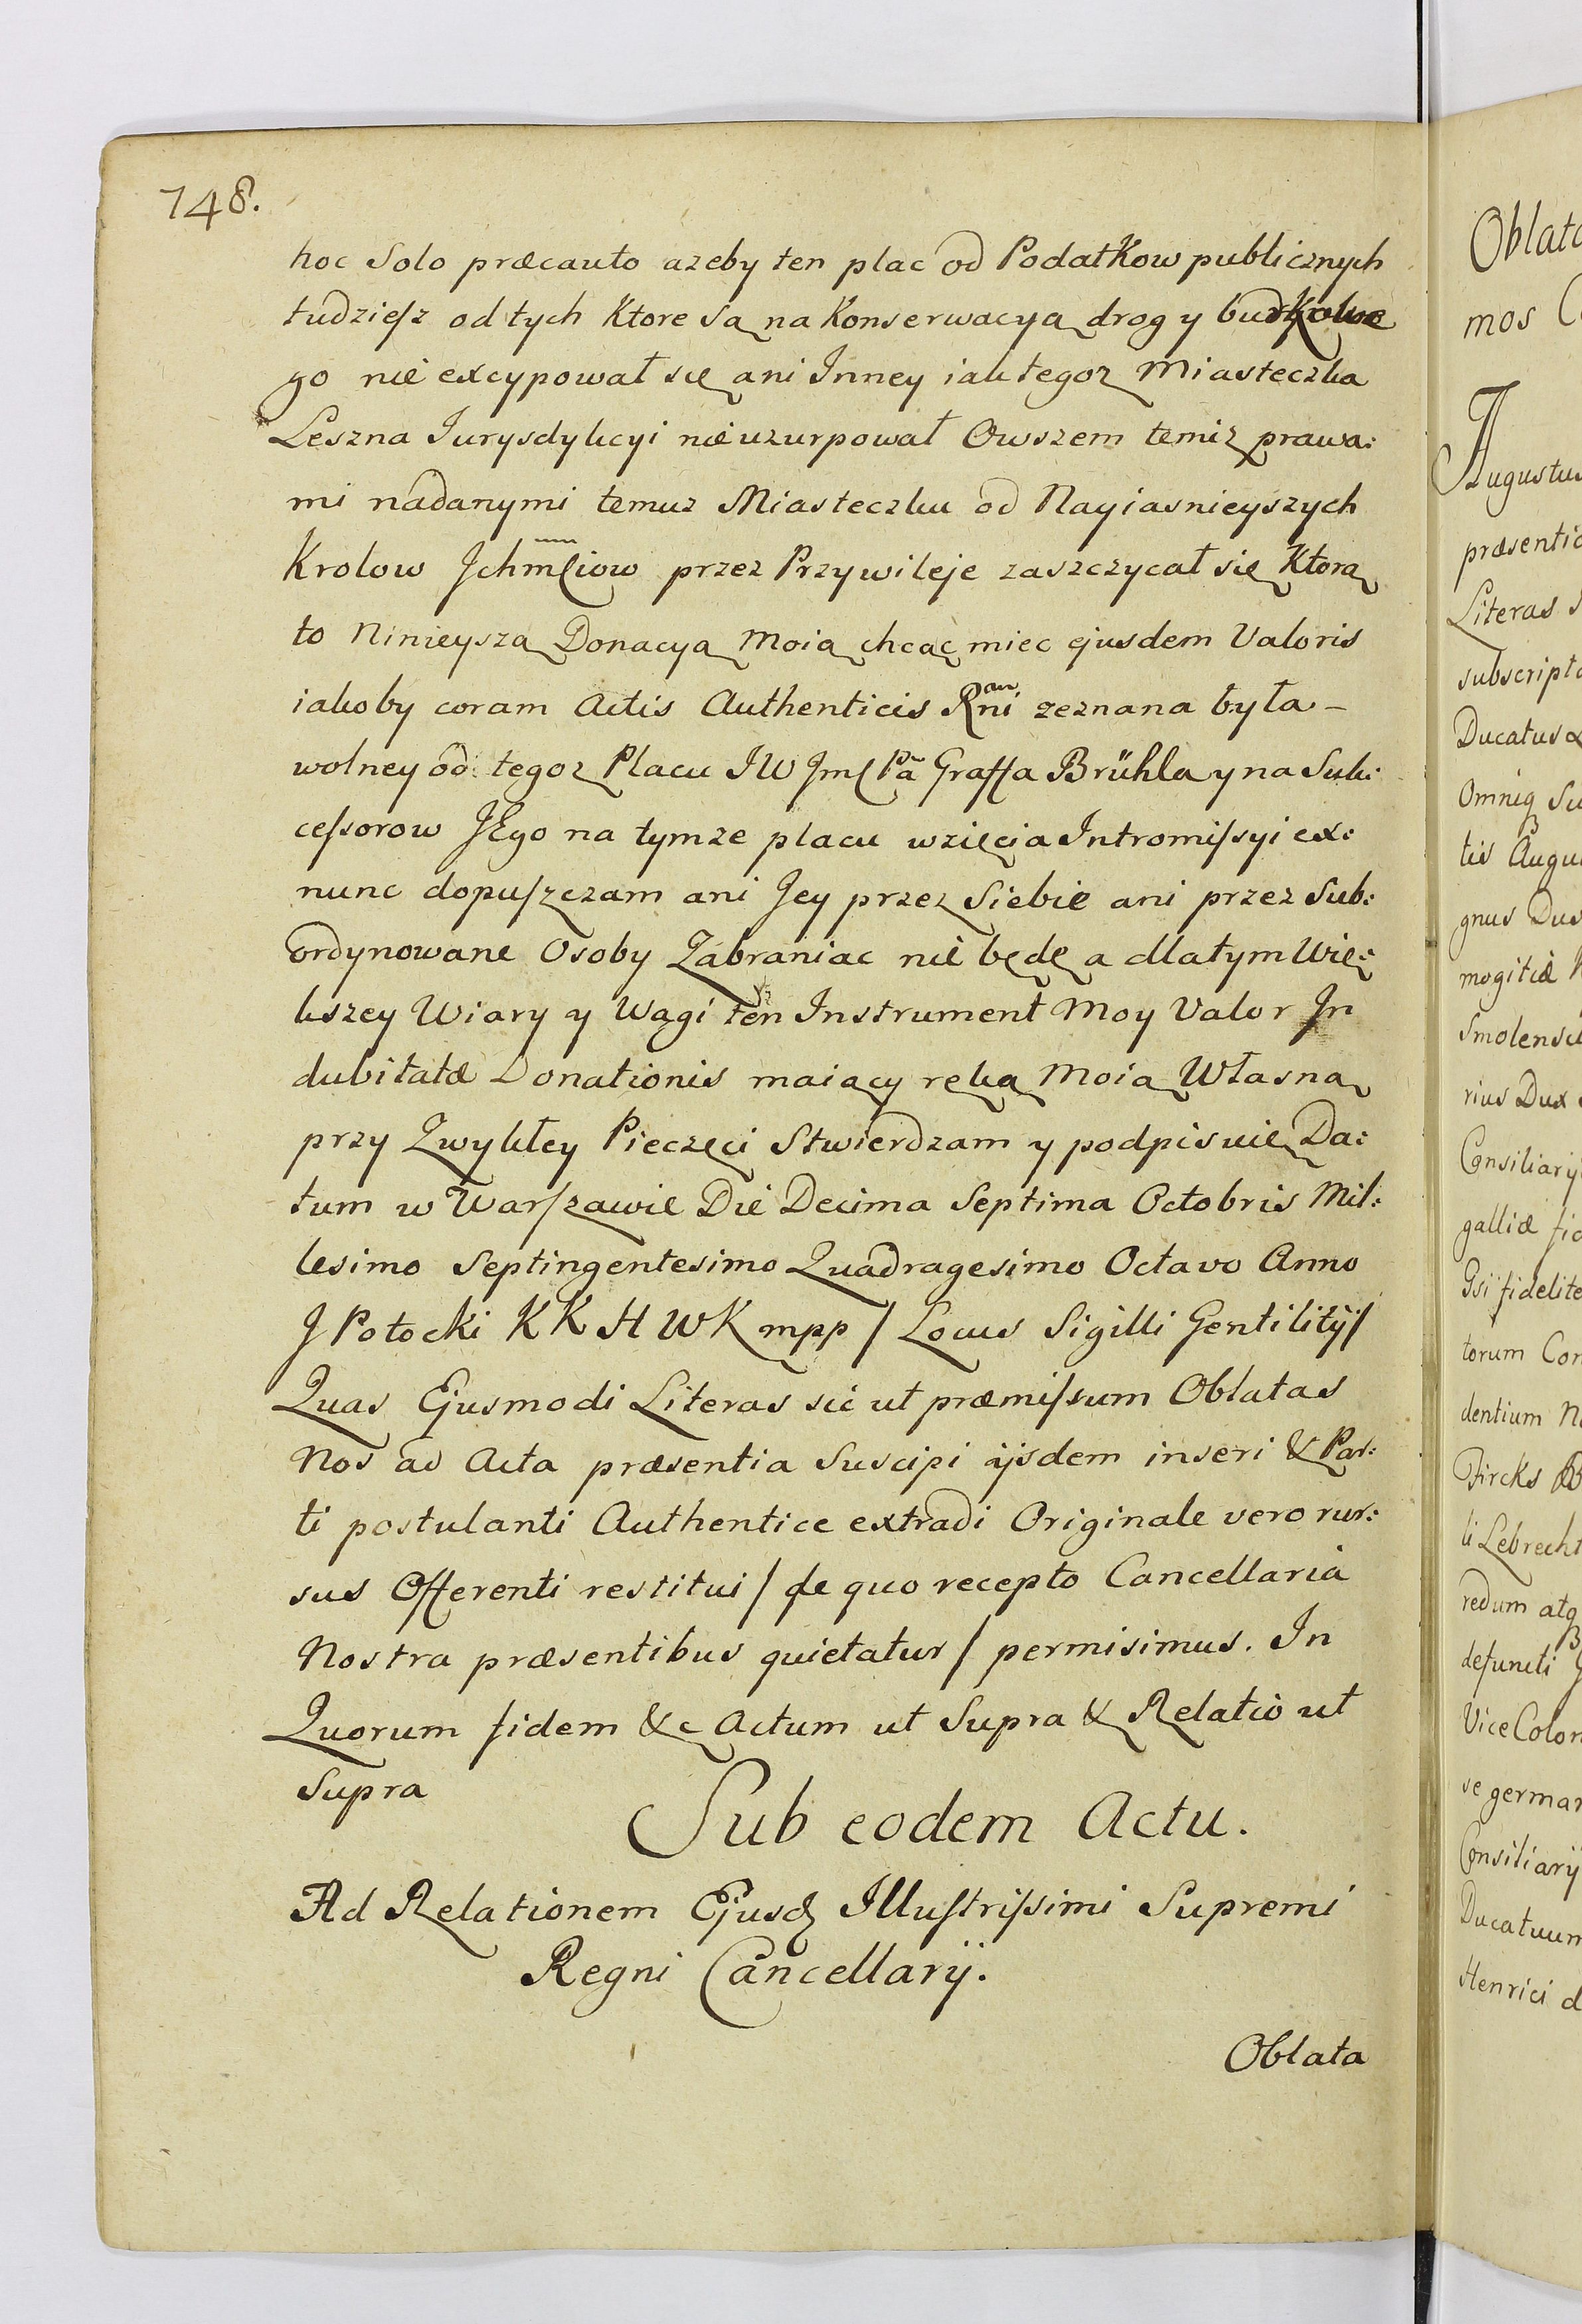 748.
hoc Solo præcauto azeby ten plac od Podatkow publicznych
tudzieſz od tych Ktore są na Konserwacyą drog y budkowe
go nie excypował się ani Inney iak tegoz Miasteczka
Leszna Jurysdykcyi nie uzurpował Owszem temiz prawa:
mi nadanymi temuz Miasteczku od Nayiasnieyszych
Krolow Jchmſciow przez Przywileje zaszczycał się Którą
to Ninieyszą Donacyą Moią chcąc miec ejusdem Valoris
iakoby coram Actis Authenticis Rni zeznana była –
wolney od tegoz Placu JW Jmſ Pã Graffa Brühla y na Suk:
ceſsorow JEgo na tymze placu wzięcia Intromiſsyi ex:
nunc dopuſzczam ani Jey przez Siebie ani przez Sub:
ordynowane Osoby Zabraniac nie będę a dla tym Wię:
kszey Wiary y Wagi ten Instrument Moy Valor In
dubitatæ Donationis maiący ręką Moią Własną
przy Zwykłey Pieczęci Stwierdzam y podpisuię Da:
tum w Warſzawie Die Decima Septima Octobris Mil:
lesimo Septingentesimo Quadragesimo Octavo Anno
J Potocki K K H W K mpp / Locus Sigilli Gentilitij /
Quas Ejusmodi Literas sic ut præmiſsum Oblatas
Nos ad Acta præsentia Suscipi ijsdem inseri & Par:
ti postulanti Authentice extradi Originale vero rur:
sus Offerenti restitui / de quo recepto Cancellaria
Nostra præsentibus quietatur / permisimus. In
Quorum fidem &c Actum ut Supra & Relatio ut
Supra
Sub eodem Actu.
Ad Relationem Ejusd Illuſtriſsimi Supremi
Regni Cancellarij.
Oblata
mos
Augustus
præsentia
Literas
subscripta
Ducatus
Omniq Su
tis Augu
gnus Dux
mogitiæ
Smolensci
rius Dux
Consiliarij
galliæ fid
Gsi fidelite
torum Con
dentium N
Fircks
li Lebrecht
redum atq
defuncti
Vice Colon
se german
Consiliarij
Ducatuum
Henrici d